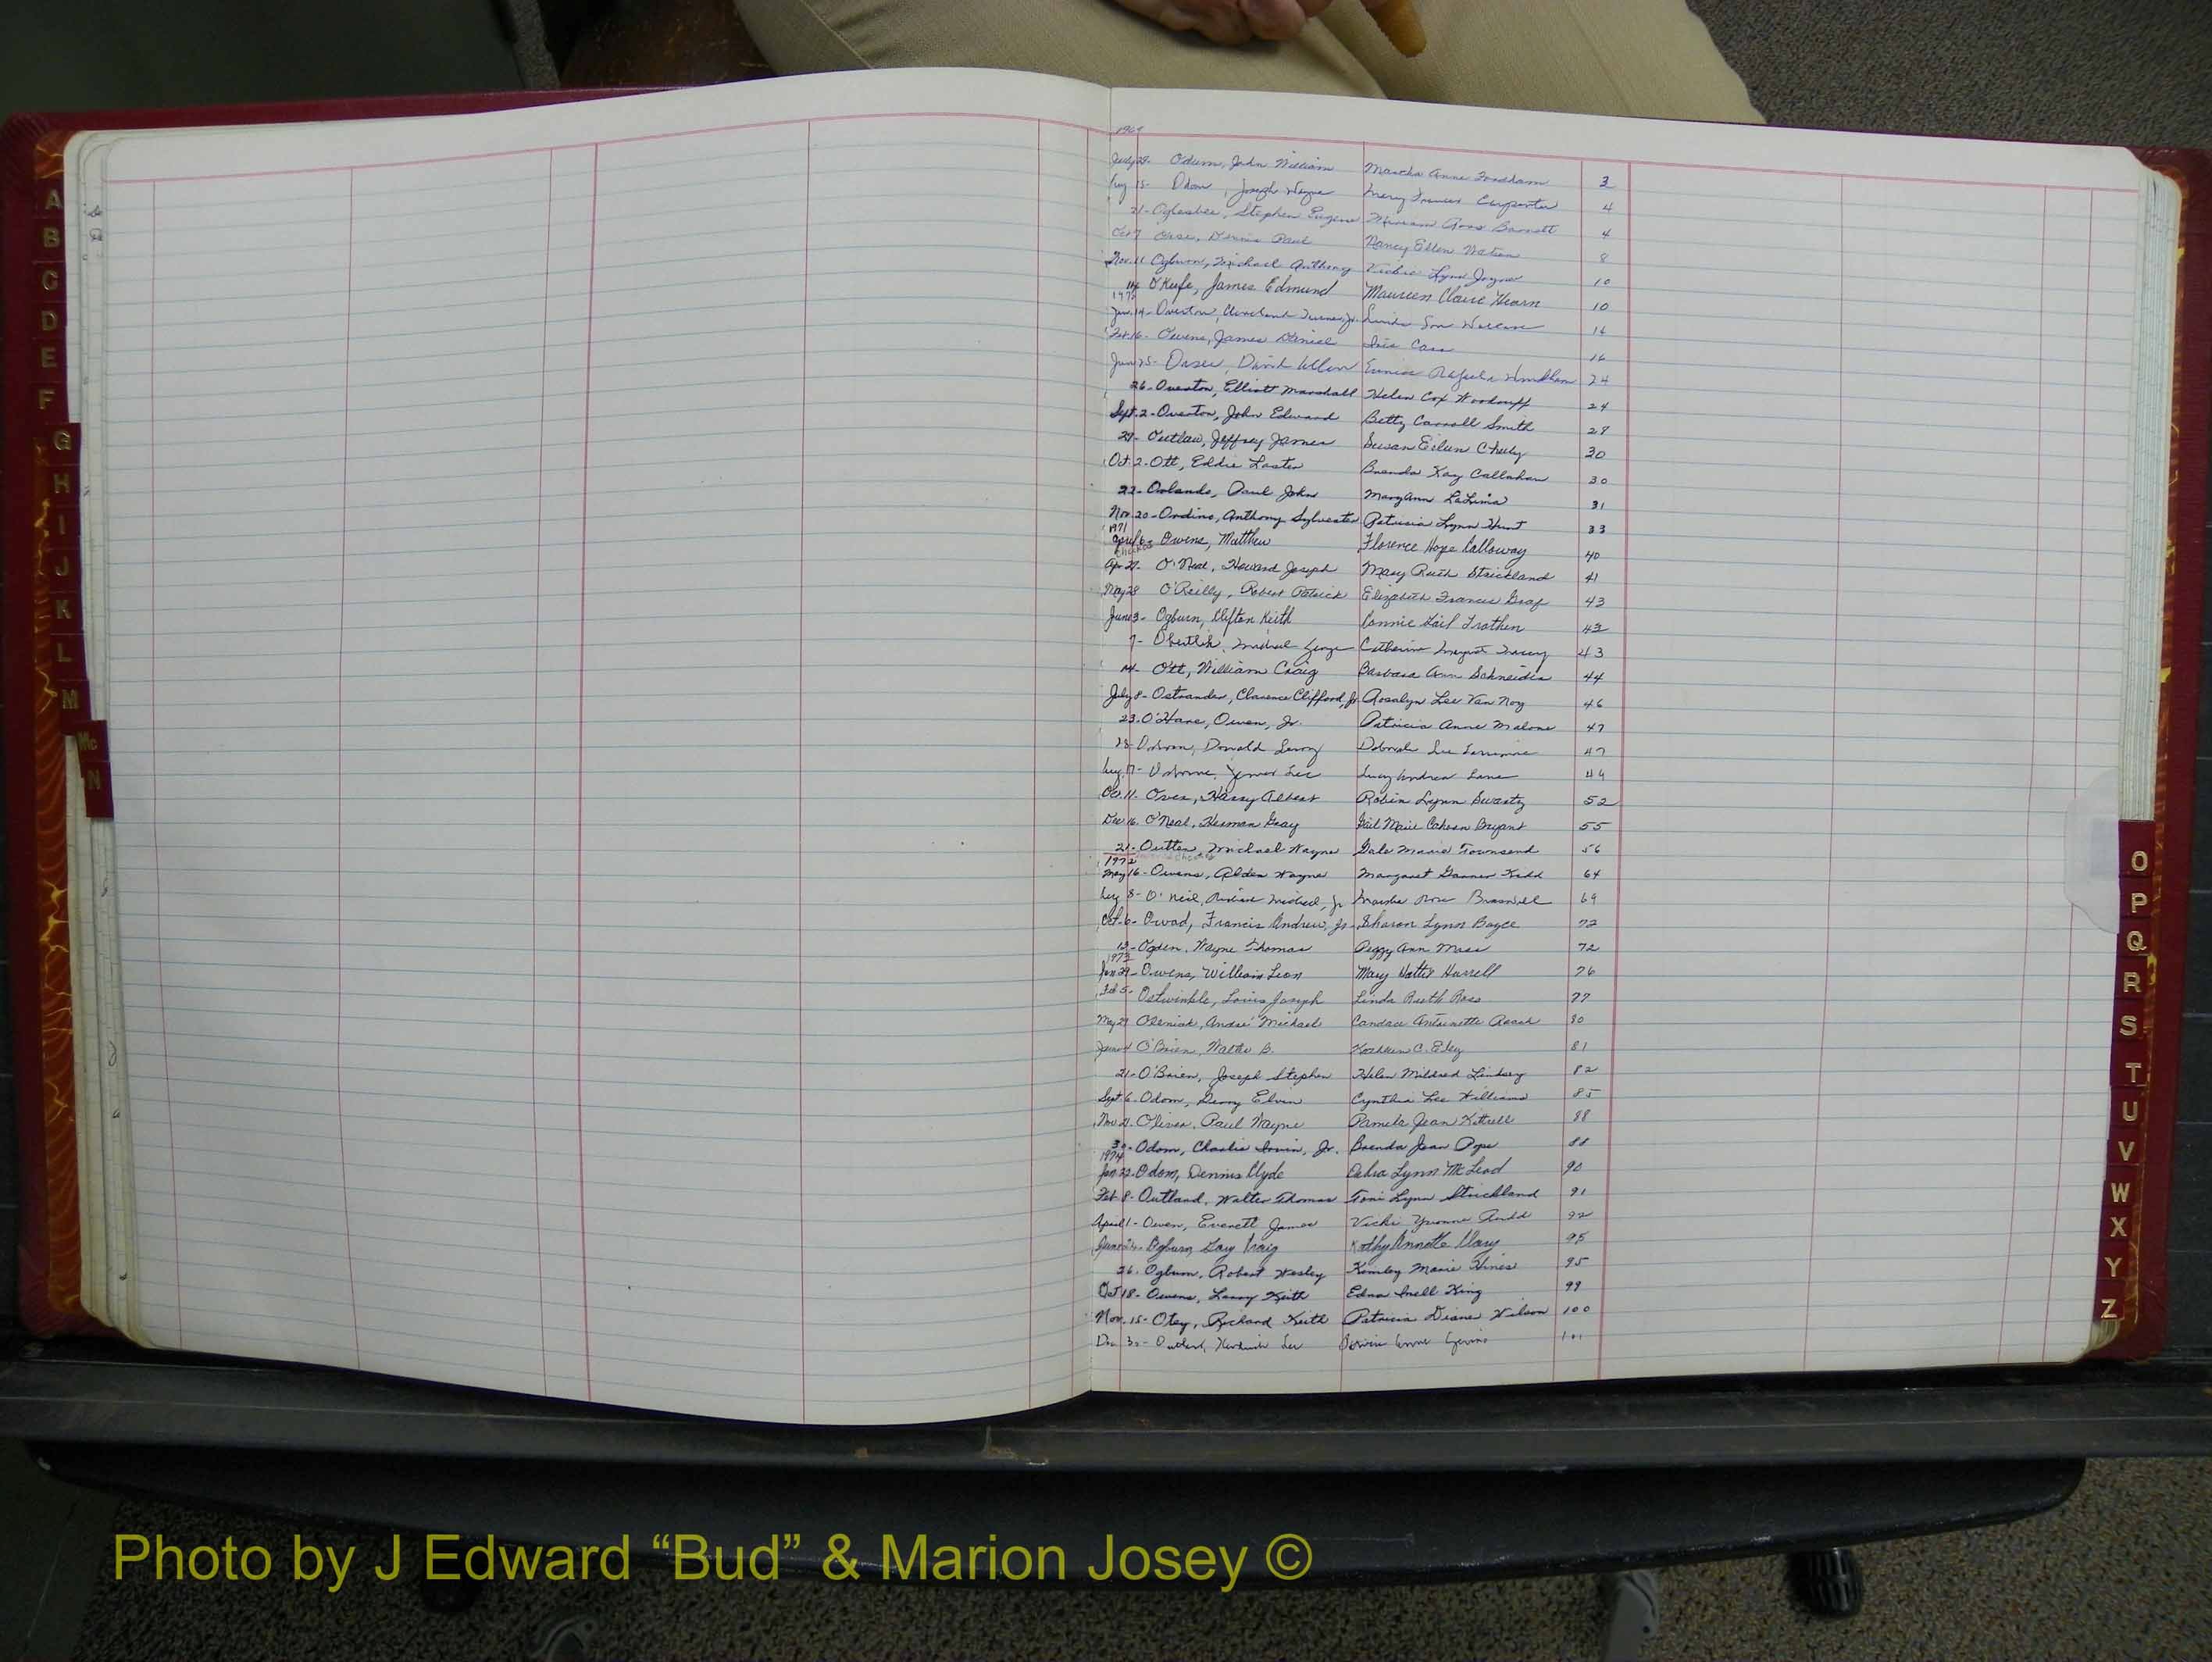 A
B
C
D
E
F
G
H
I
J
K
L
M
Mc
N
1969
July 28- Odum, John William Martha Anne 3
Aug 15- Odom, Joseph Wayne Mary Frances Carpenter 4
21- Oglesbee, Stephen Eugene Miriam Barnett 4
Oct 7 Dennis Paul Nancy Ellen 8
Nov. 11 Ogburn, Michael Anthony Vickie Lynn Joyner 10
14 O'Keefe, James Edmund Maureen Claire Hearn 10
Jan. 14- Overton, Cleveland Turner, Jr. Linda Sue Wallace 16
Feb. 16- Owens, James Daniel Iris Carr 16
June 25- David Eunice 24
26- Overton, Elliott Marshall Helen Cox Woodruff 24
Sept. 2- Overton, John Edward Betty Carroll Smith 29
29- Outlaw, Jeffrey James Susan Eileen 30
Oct. 2- Ott, Eddie Lester Brenda Kay Callahan 30
22- Orlando, Paul John MaryAnn LaLima 31
Nov. 20- Ordino, Anthony Sylvester Patricia Lynn Hunt 33
1971
April 6- Owens, Matthew Florence Hope Calloway 40
Apr 27- O'Neal, Howard Joseph Mary Ruth Strickland 41
May 28 O'Reilly, Robert Patrick Elizabeth Frances Graf 43
June 3- Ogburn, Clifton Keith Connie Gail Trathen 43
7- Michael George Catherine Margaret 43
14- Ott, William Craig Barbara Ann Schneider 44
July 8- Ostrander, Clarence Clifford, Jr. Rosalyn Lee Van Noy 46
23- O'Hare, Owen, Jr. Patricia Anne Malone 47
28- Donald Leroy Deborah Sue 47
Aug. 17- Osborne, James Lee Lucy Andrea Lane 49
Oct. 11- Harry Albert Robin Lynn Swartz 52
Dec 16. O'Neal, Herman Gray Gail Marie Bryant 55
21- Outten, Michael Wayne Gale Marie Townsend 56
1972
May 16- Owens, Alden Wayne Margaret Garner Kidd 64
Aug 8- O'Neil, Michael, Jr. Rose Braswell 69
Oct. 6- Owad, Francis Andrew, Jr. Sharon Lynn Boyce 72
13- Ogden, Wayne Thomas Peggy Ann 72
1973
Jan 29- Owens, William Leon Mary Hattie Harrell 76
Feb 5- Ostwinkle, Louis Joseph Linda Ruth Ross 77
May 29 Oleniak, Andre' Michael Candace Antoinette Roach 80
June 4 O'Brien, Walter B. Kathleen C. Eley 81
21- O'Brien, Joseph Stephen Helen Mildred Lindsey 82
Sept 6. Odom, Elvin Cynthia Lee Williams 85
Nov 21. Oliver, Paul Wayne Pamela Jean Kittrell 88
30- Odom, Charlie Irvin, Jr. Brenda Jean Pope 88
1974
Jan 22- Odom, Dennis Clyde Debra Lynn McLeod 90
Feb 8- Outland, Walter Thomas Toni Lynn Strickland 91
April 1- Owen, Everett James Vicki Yvonne 92
June Ogburn, Craig Kathy Annette Clary 95
26. Ogburn, Robert Wesley Kimley Marie Hines 95
Oct 18- Owens, Larry Keith Edna Snell King 99
Nov. 15- Otey, Richard Keith Patricia Diane Wilson 100
Dec 30- Outland, Lee Anne 101
O
P
Q
R
S
T
U
V
W
X
Y
Z
Photo by J Edward “Bud” & Marion Josey ©